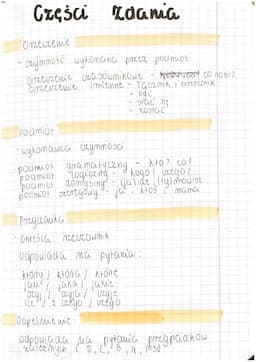 Części zdania
Orzeczenie
- czynność wykonana przez podmiot
orzeczenie czasownikowe - co robi?
orzeczenie imienne - łącznik + orzecznik
- być
- stać się
- zostać
Podmiot
- wykonawca czynności
podmiot gramatyczny - kto? co?
podmiot logiczny - kogo? czego?
podmiot domyślny -
podmiot szeregowy - ja i ktoś, mama
Przydawka
- określa rzeczownik
odpowiada na pytania:
który / która / które
jaki / jaka / jakie
czyj / czyja / czyje
ile / z czego / czego
Dopełnienie
odpowiada na pytania przypadków
zależnych (D, C, B, N, Msc)